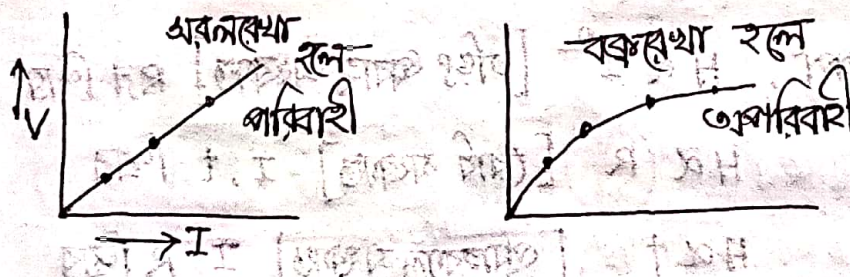 সরলরেখা
হলে
পরিবাহী
V
I
বক্ররেখা হলে
অপরিবাহী